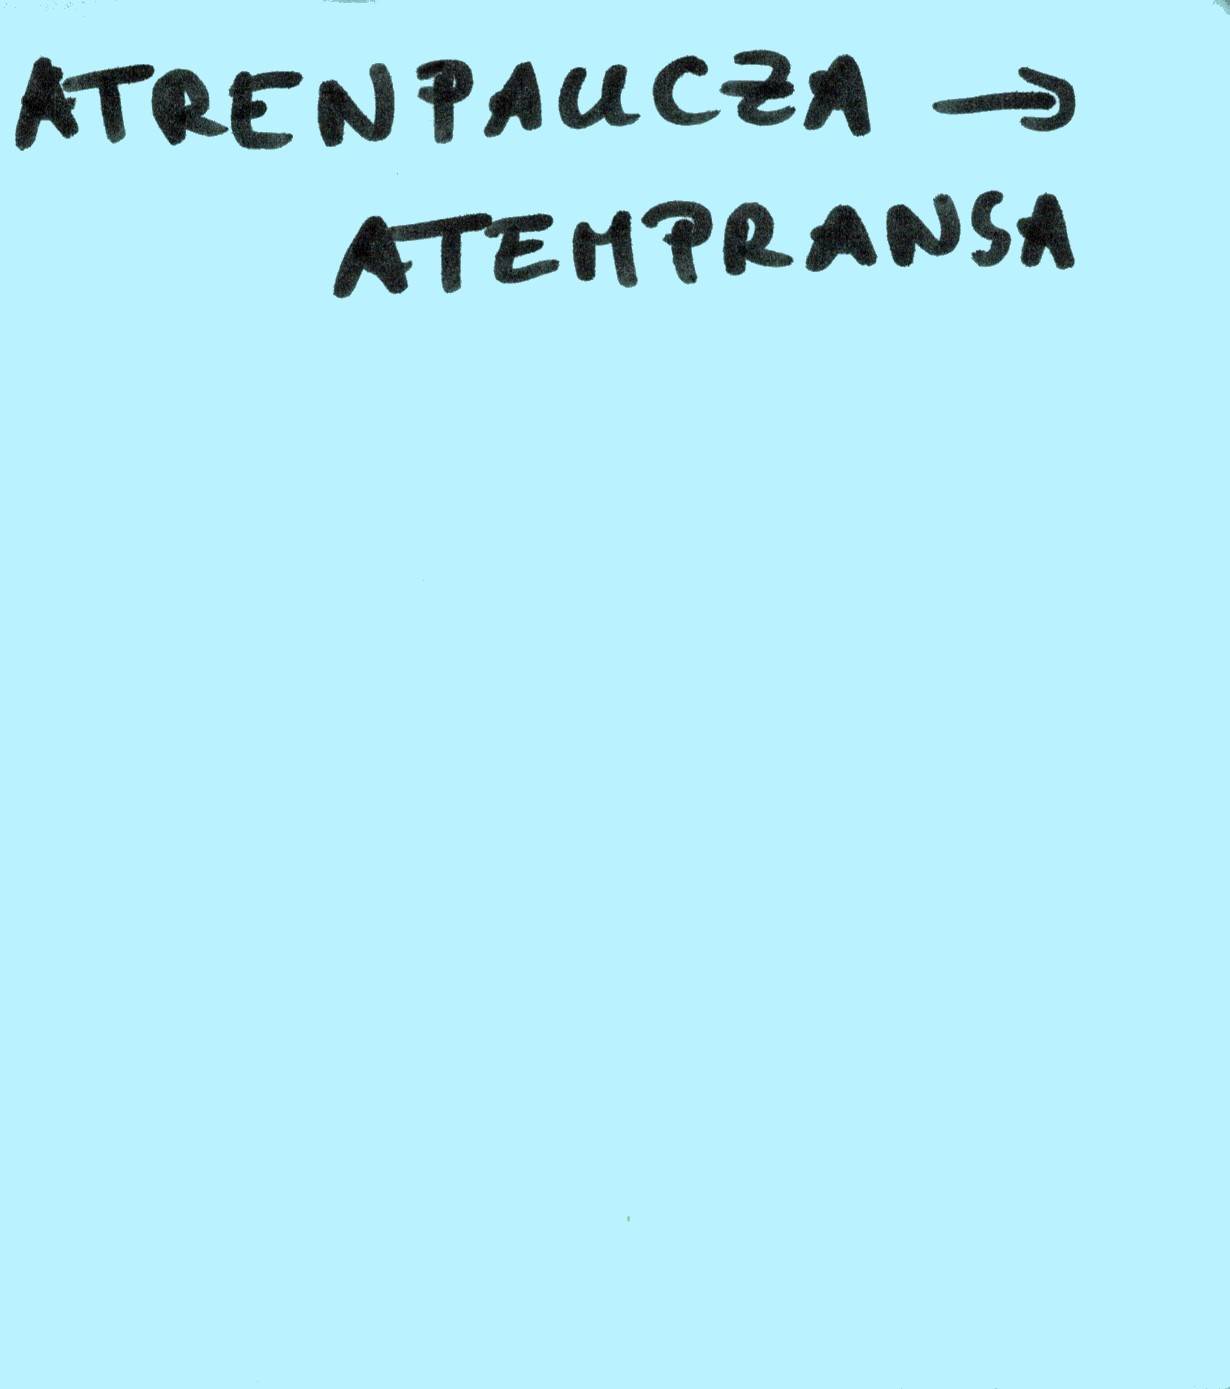 ATRENPAUCZA →
ATEMPRANSA